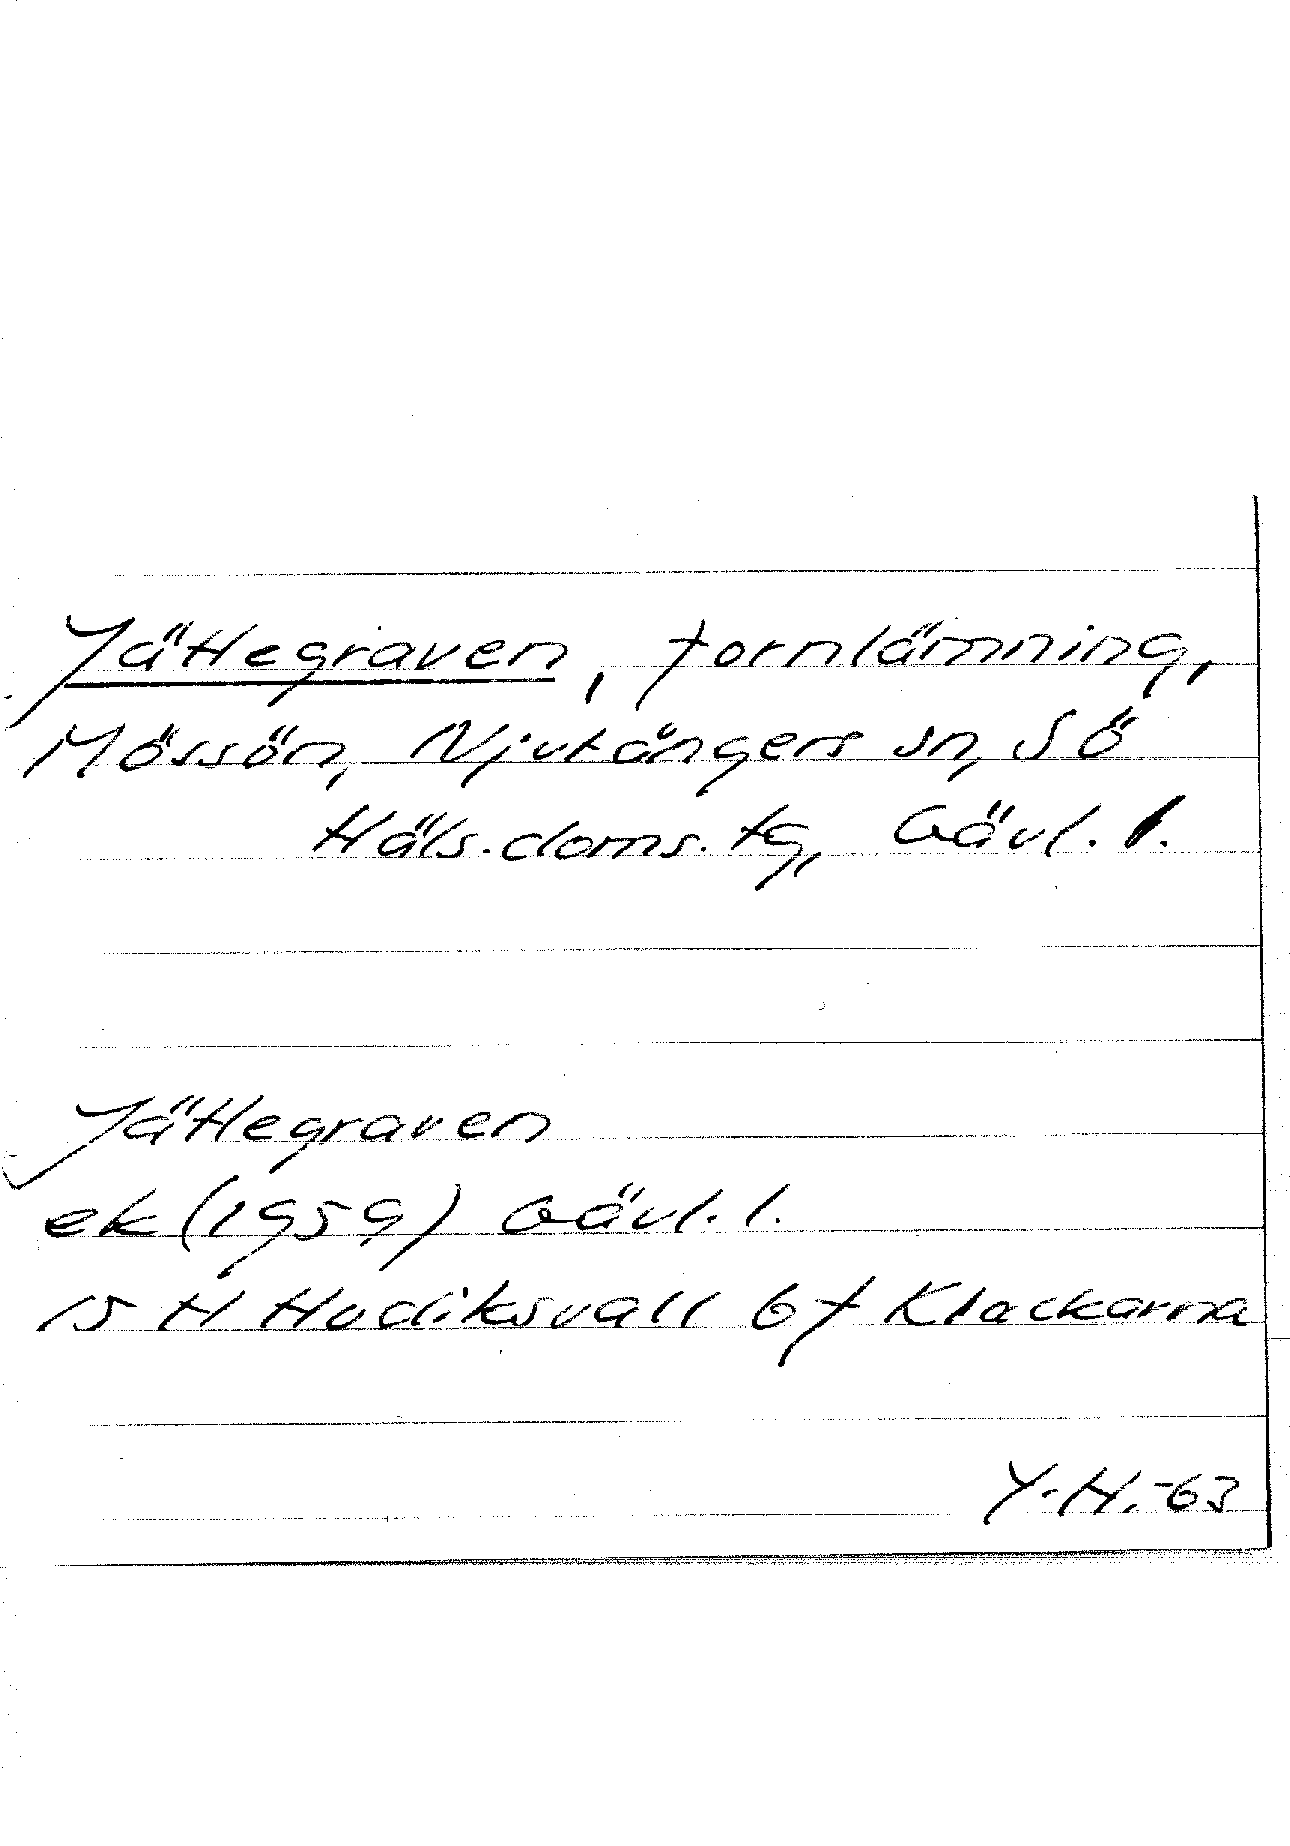 Jättegraven, fornlämning,
Mössön, Njutångers sn, Sö
Häls. doms. tg, Gävl. l.
Jättegraven
ek (1959) Gävl. l.
15 H Hudiksvall 6f Klackarna
Y.H.-63